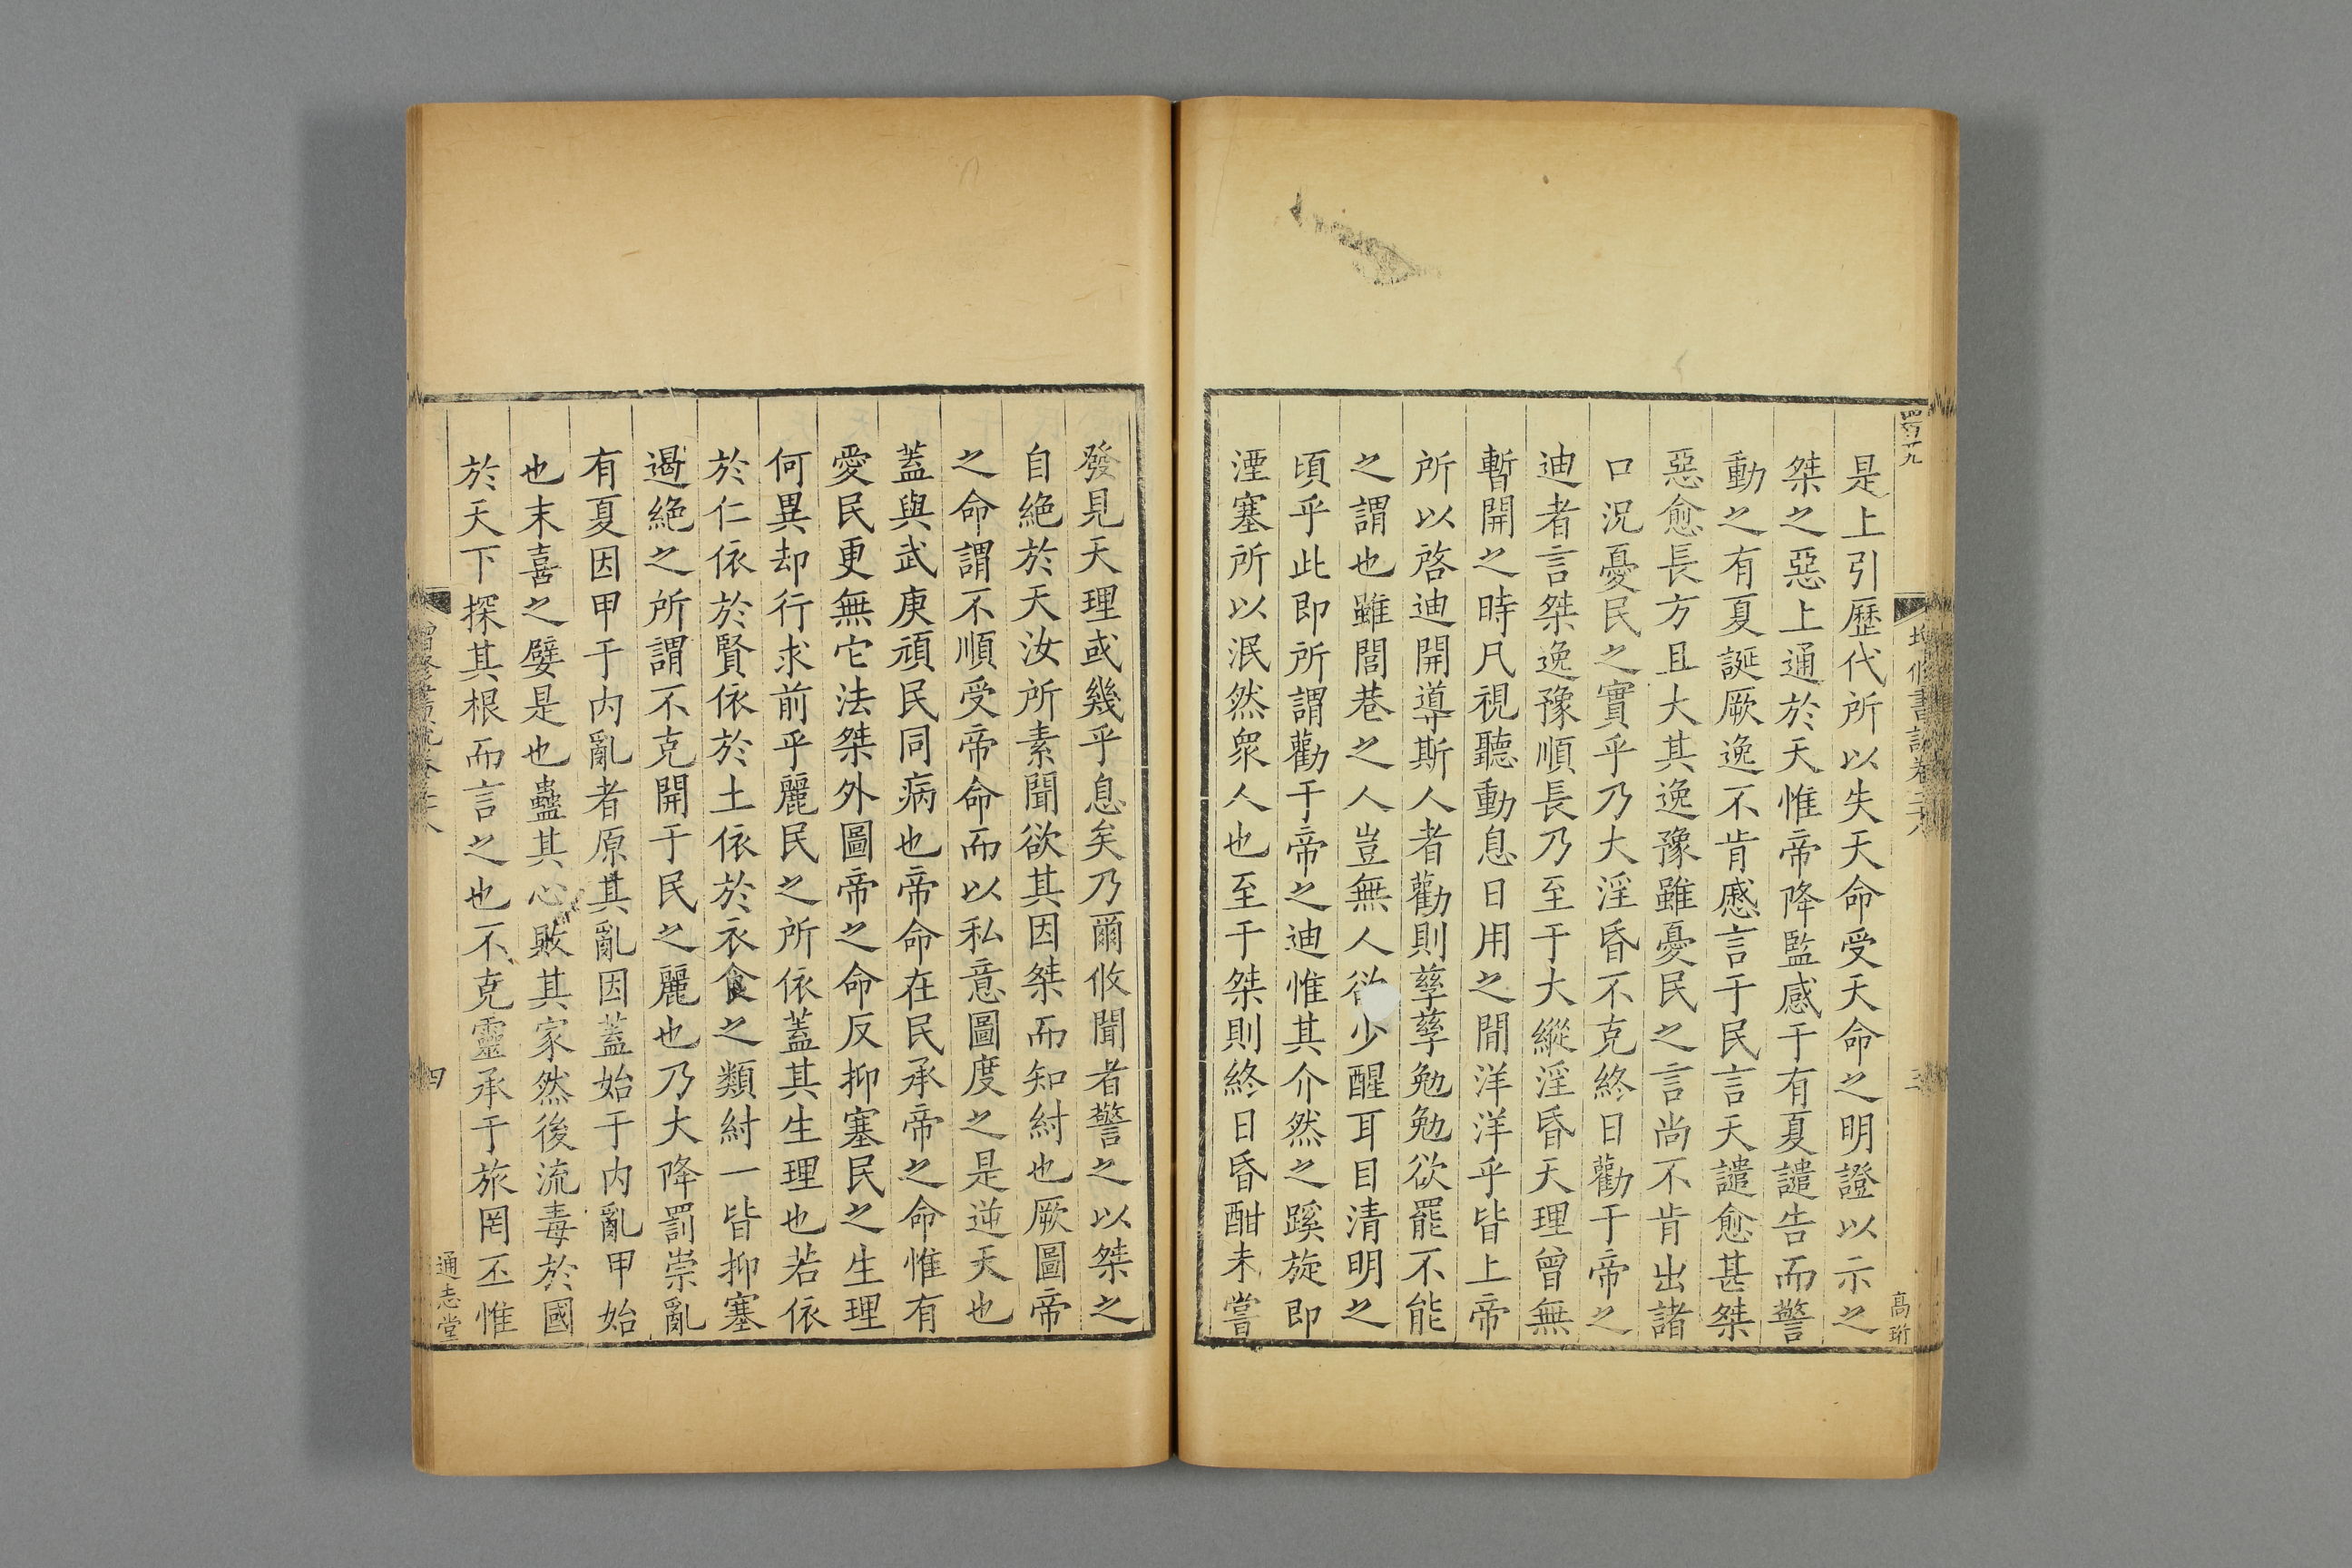 是上引歷代所以失天命受天命之明證以示之
桀之惡上通於天惟帝降監感于有夏譴告而警
動之有夏誕厥逸不肯慼言于民言天譴愈甚桀
惡愈長方且大其逸豫雖憂民之言尚不肯出諸
口況憂民之實乎乃大淫昏不克終日勸于帝之
迪者言桀逸豫順長乃至于大縱淫昏天理曾無
暫開之時凡視聽動息日用之閒洋洋乎皆上帝
所以啓迪開導斯人者勸則孳孳勉勉欲罷不能
之謂也雖閭巷之人豈無人欲少醒耳目清明之
頃乎此即所謂勸于帝之迪惟其介然之蹊旋即
湮塞所以泯然衆人也至于桀則終日昏酣未嘗
高珩
發見天理或幾乎息矣乃爾攸聞者警之以桀之
自絕於天汝所素聞欲其因桀而知紂也厥圖帝
之命謂不順受帝命而以私意圖度之是逆天也
蓋與武庚頑民同病也帝命在民承帝之命惟有
愛民更無它法桀外圖帝之命反抑塞民之生理
何異却行求前乎麗民之所依蓋其生理也若依
於仁依於賢依於土依於衣食之類紂一皆抑塞
遏絕之所謂不克開于民之麗也乃大降罰崇亂
有夏因甲于內亂者原其亂因蓋始于內亂甲始
也末喜之嬖是也蠱其心敗其家然後流毒於國
於天下探其根而言之也不克靈承于旅罔丕惟
四
通志堂